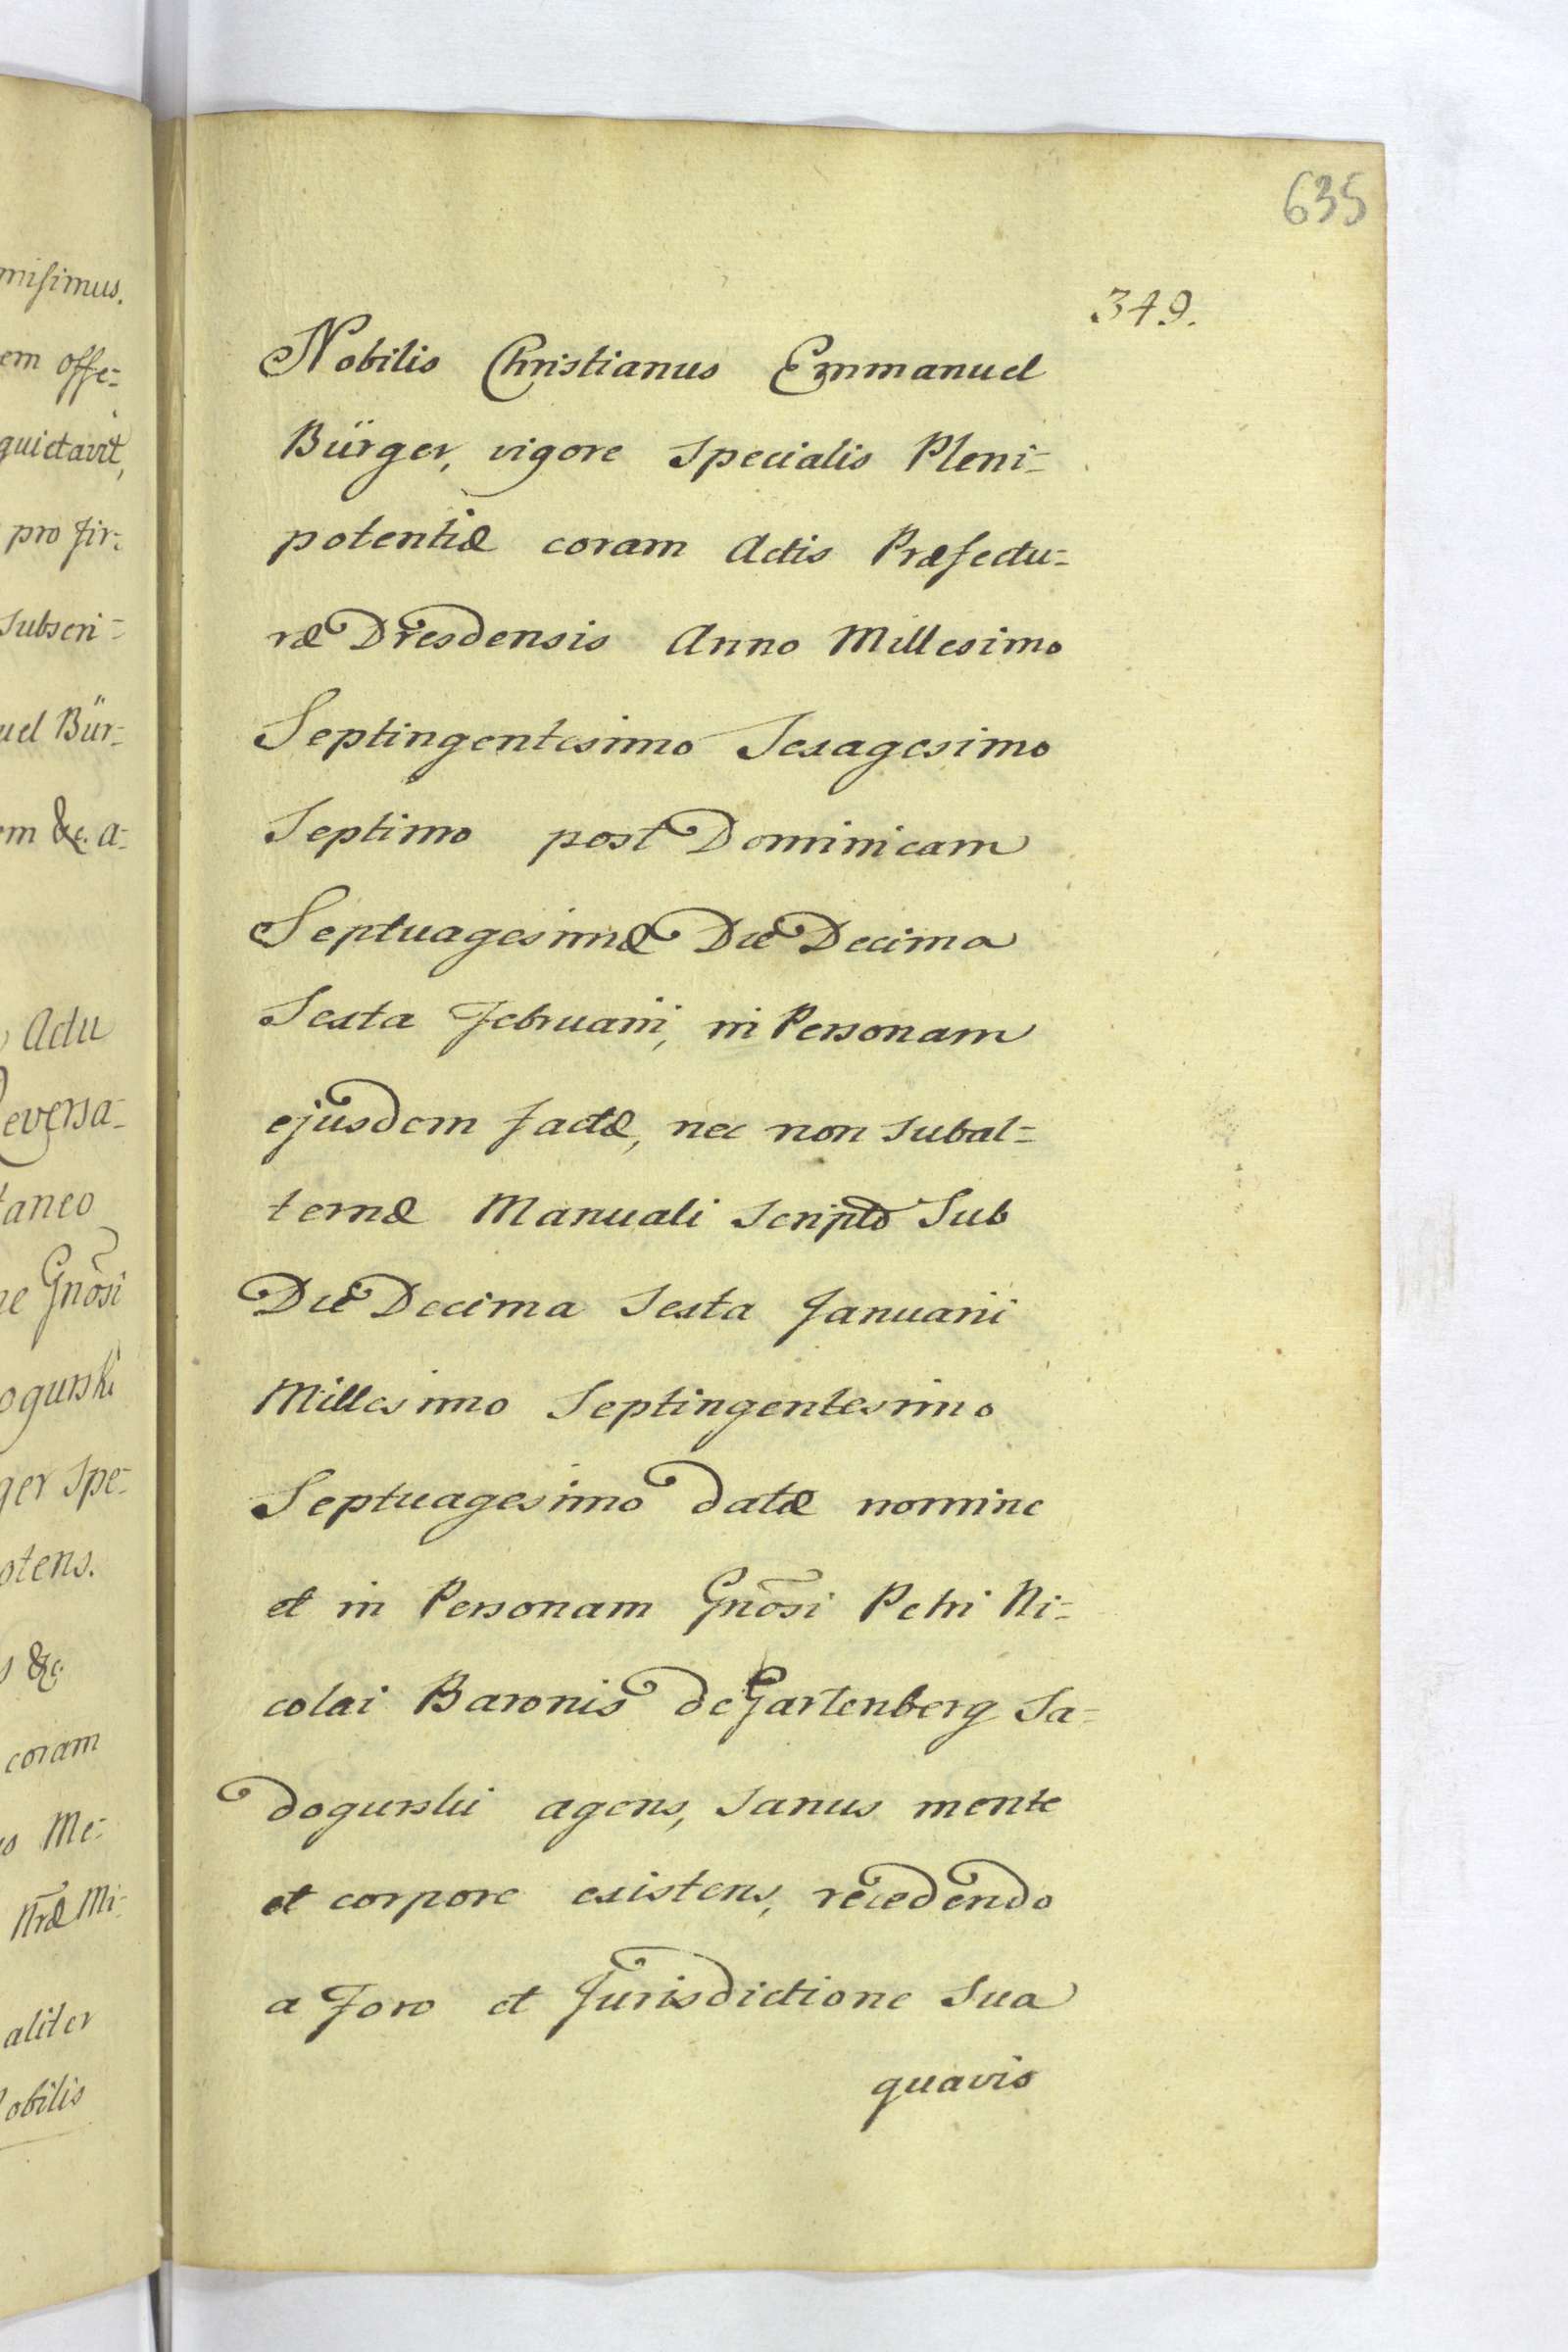 635
349.
Nobilis Christianus Emmanuel
Bürger, vigore Specialis Pleni=
potentiæ coram Actis Præfectu=
ræ Dresdensis Anno Millesimo
Septingentesimo Sexagesimo
Septimo post Dominicam
Septuagesimæ Die Decima
Sexta Februarii, in Personam
ejusdem factæ, nec non Subal=
ternæ Manuali Scripto Sub
Die Decima Sexta Januarii
Millesimo Septingentesimo
Septuagesimo datæ nomine
et in Personam Gnosi Petri Ni=
colai Baronis de Gartenberg Sa=
dogurski agens, Sanus mente
et corpore existens, recedendo
a Foro et Jurisdictione Sua
quavis
misimus.
em offe=
quietavit,
pro fir=
Subscri=
uel Bür=
em &c. a=
Actu
eversa=
taneo
ne Gnosi
ogurski
ger Spe=
otens.
s &c.
coram
Me=
Nræ Mi=
aliter
obilis